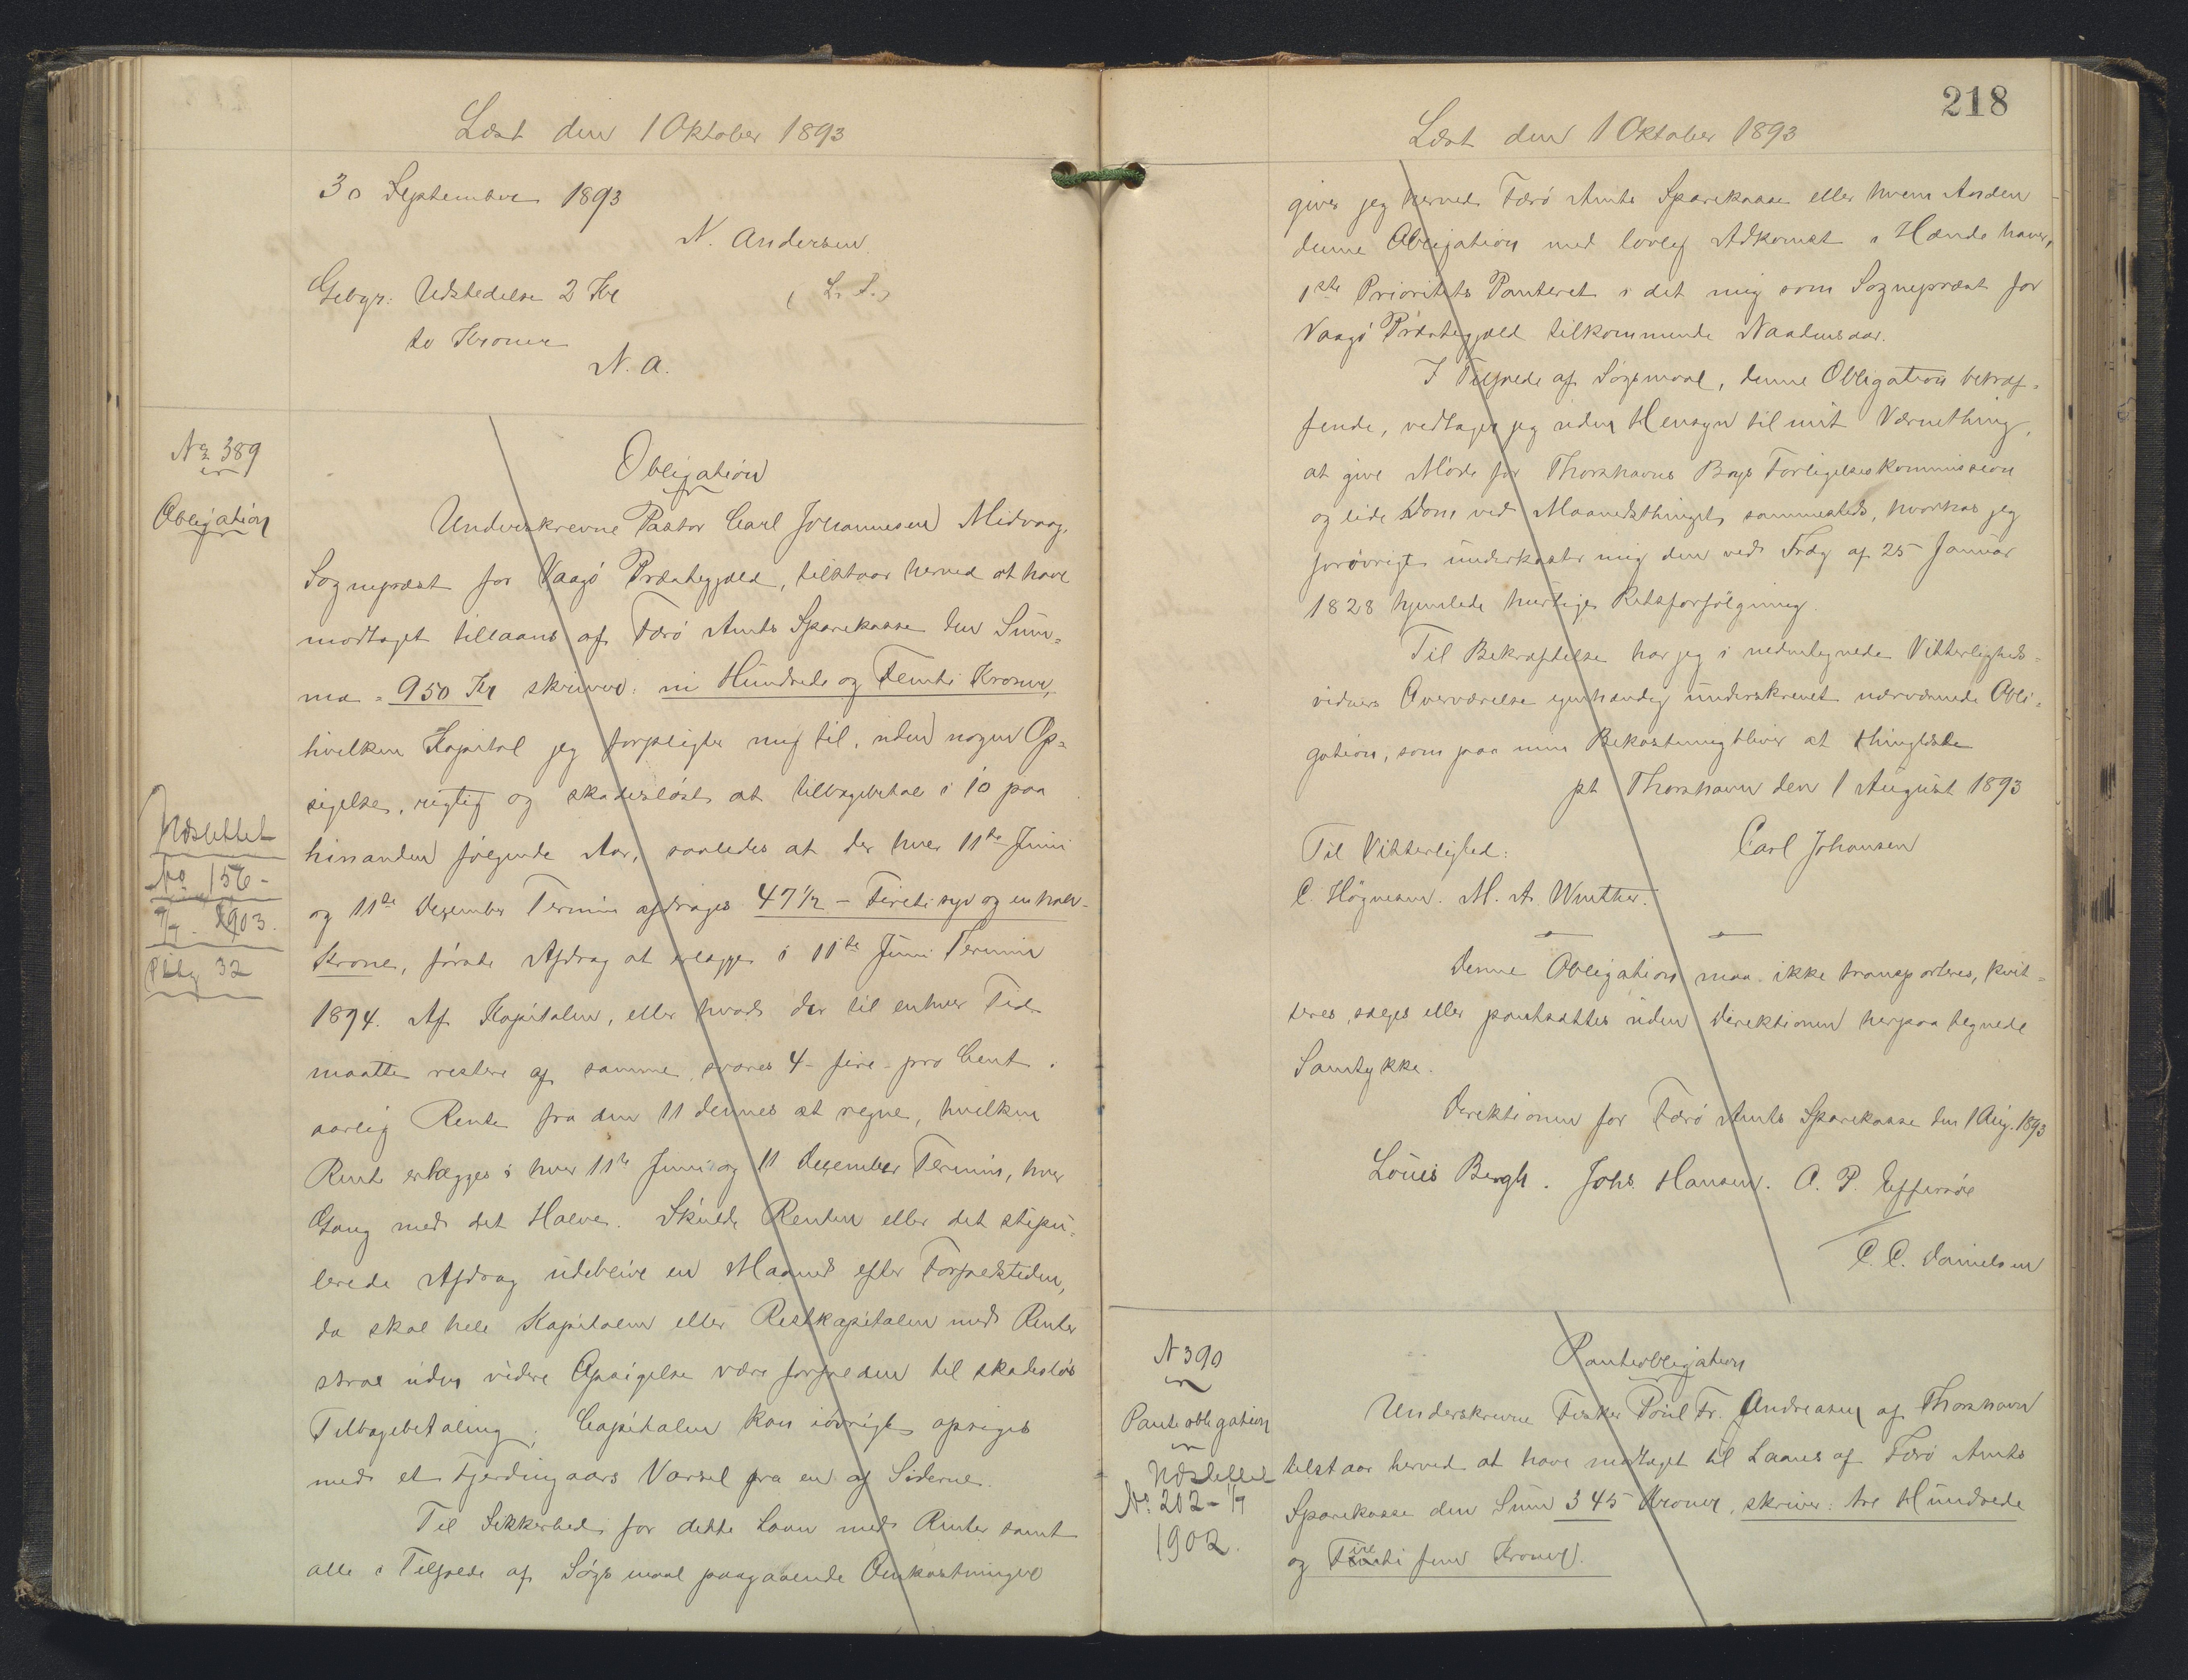 Læst den 1 Oktober 1893
30 September 1893
N. Andersen
Gebyr: Udstedelse 2 Kr (L. S.)
to Kroner
N. A.
No 389
Obligation
Obligation
Underskrevne Pastor Carl Johannesen Midvaag,
Sognepræst for Vaagø Præstegjæld, tilstaar herved at have
modtaget tillaans af Færø Amts Sparekasse den Sum-
ma = 950 Kr skriver: ni Hundrede og Femti Kroner,
hvilken Kapital jeg forpligter mig til, uden nogen Op-
sigelse, rigtig og skadesløst at tilbagebetale i 10 paa
hinanden følgende Aar, saaledes at der hver 11te Juni
og 11te Dezember Termin afdrages 47½ - Fireti syv og en halv -
Krone, første Afdrag at erlægge i 11te Juni Termin
1894. Af Kapitalen, eller hvad der til enhver Tid
maatte restere af samme, svares 4 - fire - pro Cent i
aarlig Rente fra den 11 dennes at regne, hvilken
Rente erlægges i hver 11te Juni og 11 Dezember Termin, hver
Gang med det Halve. Skulde Renten eller det stipu-
lerede Afdrag udeblive en Maaned efter Forfaldstiden,
da skal hele Kapitalen eller Restkapitalen med Renter
strax uden videre Opsigelse være forfalden til skadesløs
Tilbagebetaling; Capitalen kan iøvrigt opsiges
med et Fjerdingaars Varsel fra en af Siderne.
Til Sikkerhed for dette Laan med Renter samt
alle i Tilfælde af Søgsmaal paagaaende Omkostninger
Udslettet
No 156 -
1903.
32
218
Læst den 1 Oktober 1893
giver jeg herved Færø Amts Sparekasse eller hvem Anden
denne Obligation med lovlig Adkomst i Hænde haver,
1ste Prioritets Panteret i det mig som Sognepræst for
Vaagø Præstegjæld tilkommende Naadensaar.
I Tilfælde af Søgsmaal, denne Obligation betræf-
fende, vedtager jeg uden Hensyn til mit Værnething,
at give Møde for Thorshavns Byes Forligelseskommission
og lide Dom ved Maanedsthinget sammesteds, hvorhos jeg
forøvrigt underkaster mig den ved Frdg af 25 Januar
1828 hjemlede hurtige Retsforfølgning.
Til Bekræftelse har jeg i nedentegnede Vitterligheds-
vidners Overværelse egenhændig underskrevet nærværende Obli-
gation, som paa min Bekostning bliver at thinglæse
pt Thorshavn den 1 August 1893
Til Vitterlighed: Carl Johansen
C. Högnesen. M. A. Winther.
Denne Obligation maa ikke transporteres, kvit-
teres, sælges eller pantsættes uden Direktionens herpaa tegnede
Samtykke.
Direktionen for Færø Amts Sparekasse den 1 Aug. 1893
Louis Bergh. Johs. Hansen. O. P. Effersøe
/ C. C. Danielsen
N 390
Panteobligation
Udslettet
No. 202 - 1/9
1902.
Panteobligation
Underskrevne Fisker Poul Fr. Andreasen af Thorshavn
tilstaar herved at have modtaget til Laans af Færø Amts
Sparekasse den Sum 345 Kroner, skriver: tre Hundrede
og Fireti fem Kroner.